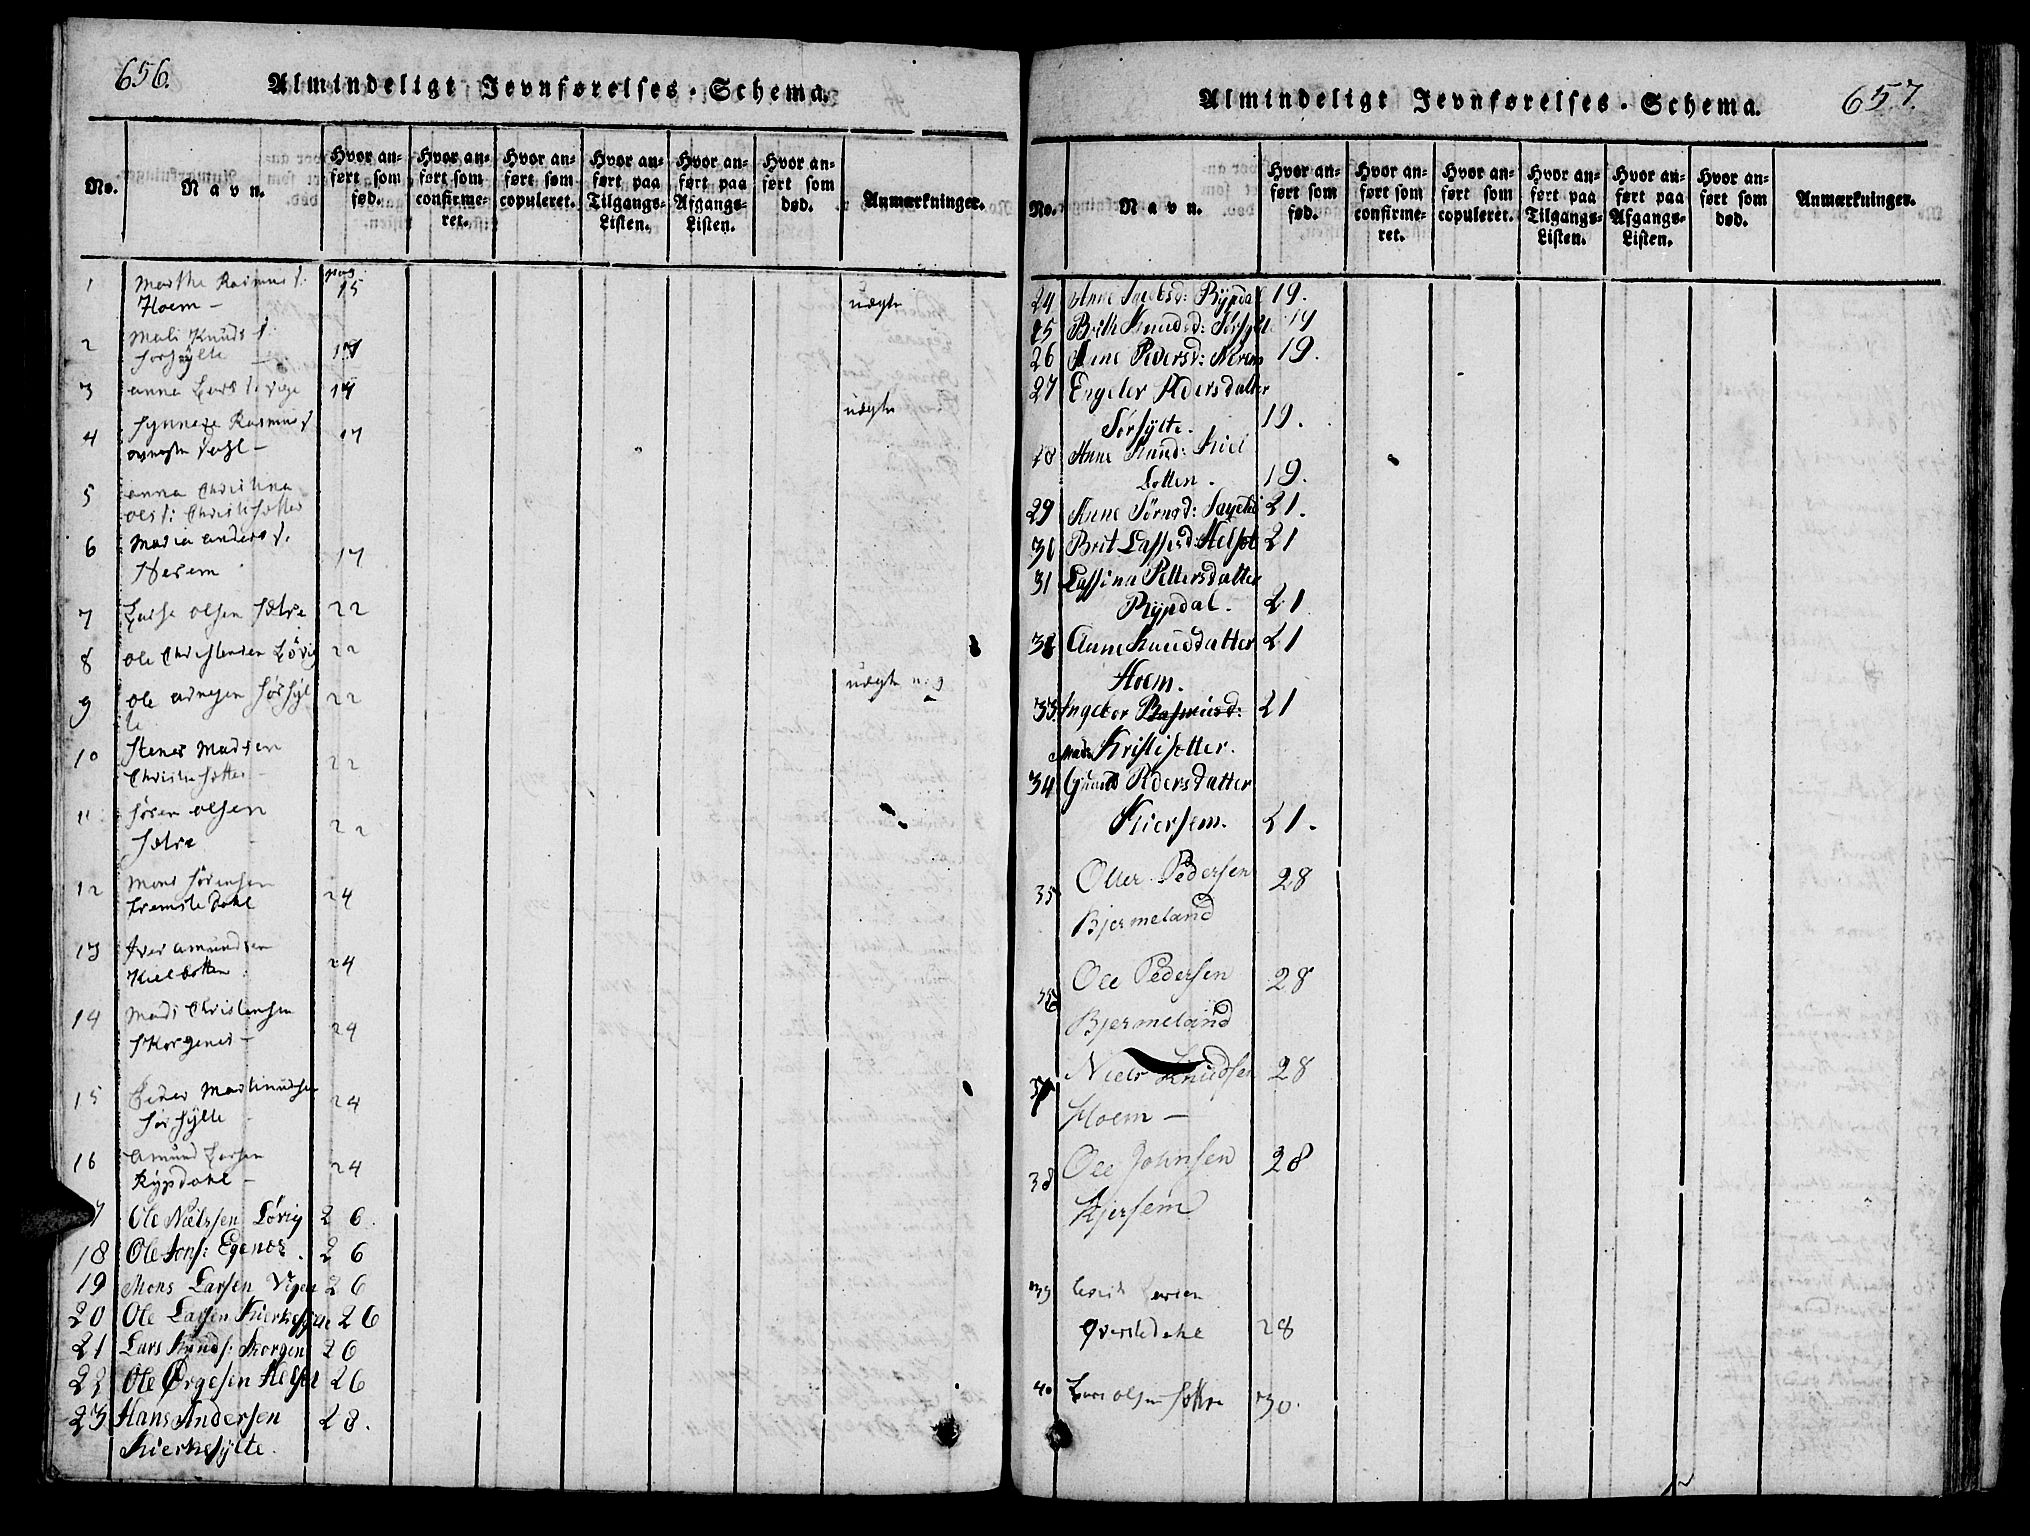 656.
Almindeligt Jevnførelses-Schema.
No.
Navn.
Hvor anført som fød.
Hvor anført som confirmeret.
Hvor anført som copuleret.
Hvor anført paa Tilgangs-Listen.
Hvor anført paa Afgangs-Listen.
Hvor anført som død.
Anmærkninger.
1 Marthe Rasmus d: pag. 15
Hoem - uægte
2 Mali Knuds d:
Sørsylte 17
3 anna Lars d: Vige 17
4 Synneve Rasmus d 17 uægte
5 anna Christina
Ols d: Christisætter
6 Maria anders d. 17
Nerem
7 Lasse olsen Sætre 22
8 ole Christensen Løvig 22
9 ole Sørsyl 22 uægte
te
10 Stener Madsen
Christisætter 22
11 Søren olsen
Sætre 22
12 Mons Sørensen
Fremste Dahl 24
13 Iver amundsen
Kielbotten 24
14 Mads Christensen
Skorgenes - 24
15 Peder Mortinussen 24
Sørsylte
16 amund Larsen
Rypdahl - 24
7 Ole Nielssen Løvig 26.
18 Ole Jons: Egenæs. 26
19 Mons Larsen Vigen 26
20 Ole Larsen 26
21 Lars Knuds: Skorgen 26
22 Ole Ørgesen Helset 26
23 Hans Andersen 28.
Kierkesylte.
657.
Almindeligt Jevnførelses-Schema.
No.
Navn.
Hvor anført som fød.
Hvor anført som confirmeret.
Hvor anført som copuleret.
Hvor anført paa Tilgangs-Listen.
Hvor anført paa Afgangs-Listen.
Hvor anført som død.
Anmærkninger.
24 Anne Jacobsd: Rypdal 19.
25 Brith Knudsd: Sørsylte 19
26 Anne Pedersd: Nerem 19.
27 Engeler Pedersdatter
Sørsylte. 19.
28 Anne Knud: Kiel
botten. 19.
29 Anne Sørnsd: 21.
30 Brit Lassesd: Helset 21
31 Lassina Pettersdatter
Rypdal. 21
32 Anne Knudsdatter 21
Hoem.
33 Ingebor Rasmusd: 21
Mads Kristisetter.
34 Gunild Pedersdatter
Kiersem. 21.
35 Oller Pedersen 28
Bjermeland
36 Ole Pedersen 28
Bjermeland
37 Niels Knudsen 28
Hoem -
38 Ole Johnsen 28
Kjersem
39
Øverstedahl 28
40 Lars olsen Sættre 30.